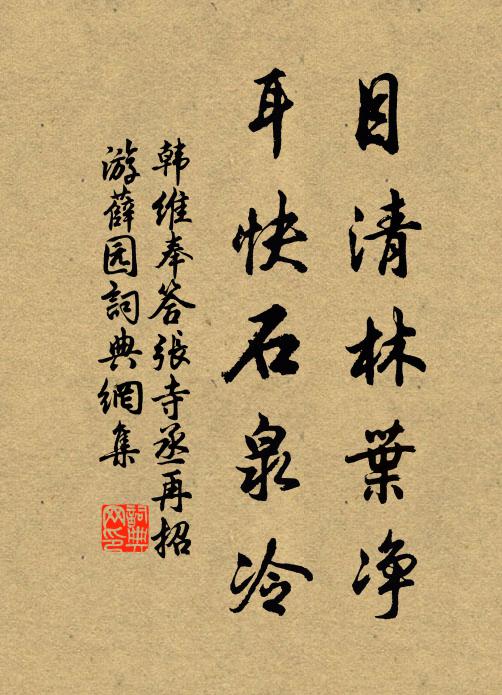 目清林葉净
耳快石泉冷
韩维奉答張寺丞再招
游薛园詞典網集
詞典
网印